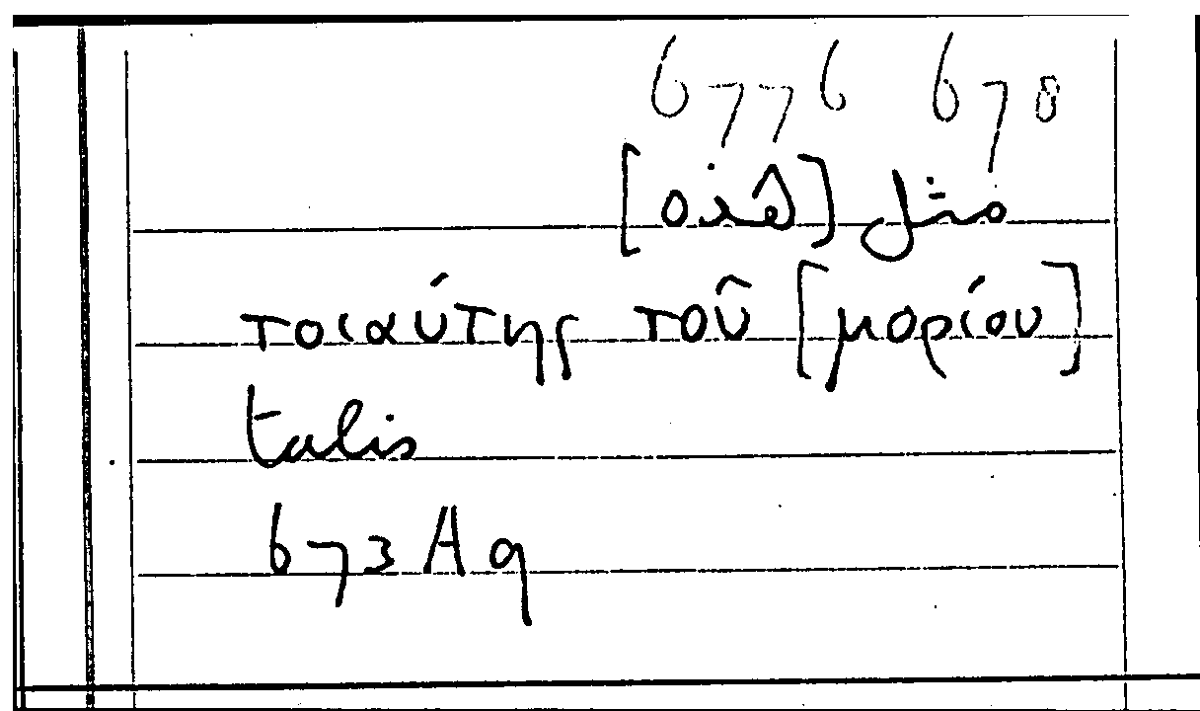 6776 678
مثل [هذه]
τοιαύτης τοῦ [μορίου]
talis
673 A9